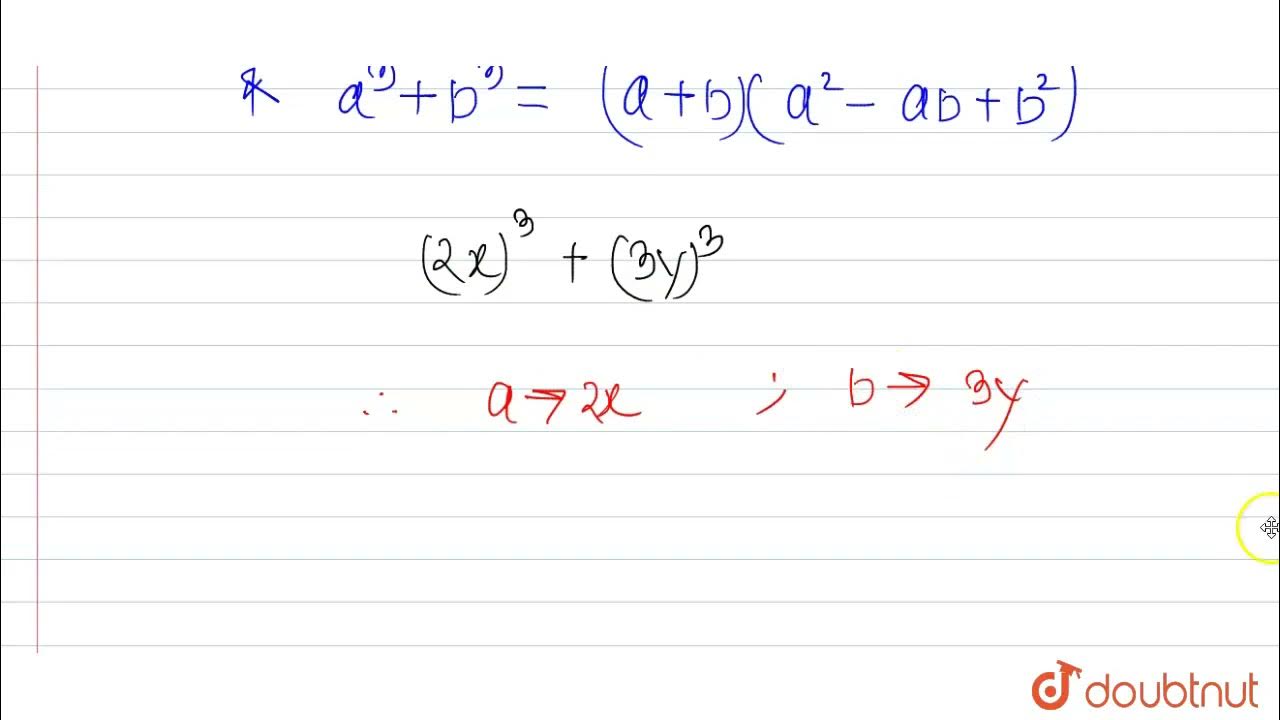 * a³ + b³ = (a + b)(a² - ab + b²)
(2x)³ + (3y)³
∴ a → 2x ; b → 3y
doubtnut